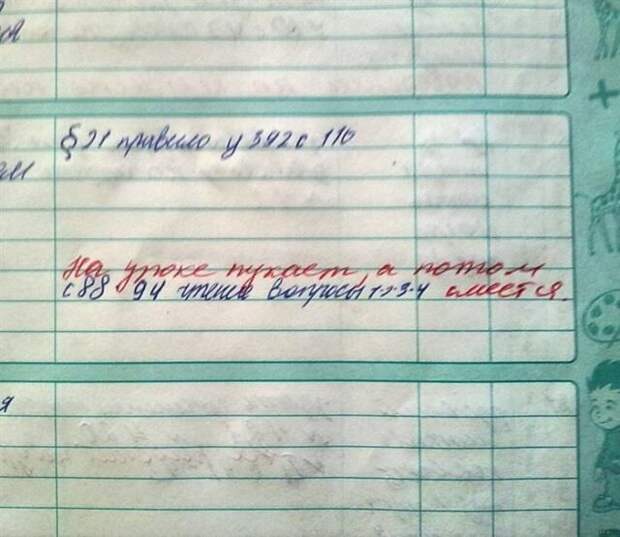 ся
§ 21 правило у 392 с 116
ем
На уроке пукает, а потом
с 88 94 чтение вопросы 1-2-3-4 смеется.
я